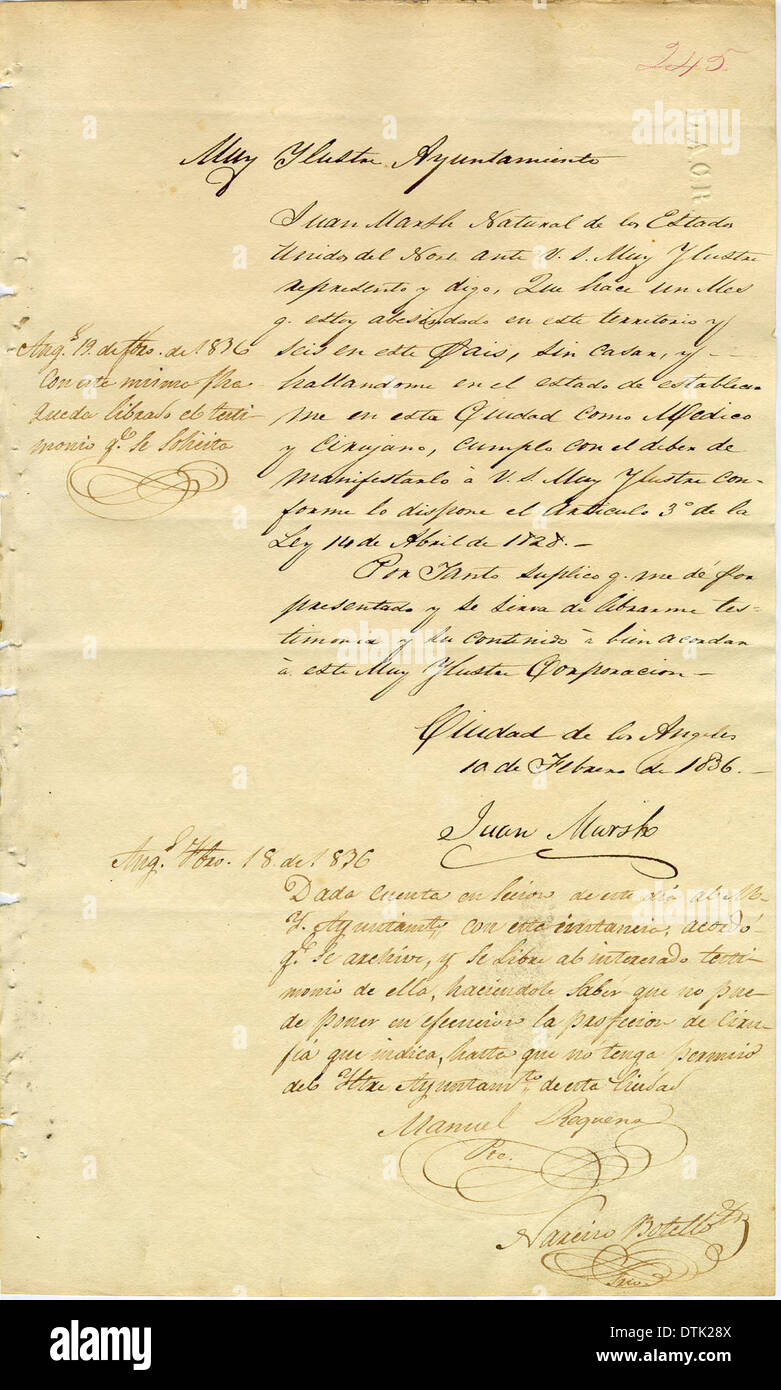 245
Muy Ylustre Ayuntamiento
Juan Marsh Natural de los Estados
Unidos del Norte ante V. S. Muy Ylustre
represento y digo, Que hace un Mes
q. estoy abesindado en este territorio y
seis en este Pais, sin casar, y —
hallandome en el estado de establecer
me en esta Ciudad como Medico
y Cirujano, cumplo con el deber de
manifestarlo à V. S. Muy Ylustre con-
forme lo dispone el Articulo 3º de la
Ley 14 de Abril de 1828. —
Por Tanto suplico q. me dé por
presentado y se sirva de librarme tes-
timonio y su contenido à bien acordar
à este Muy Ylustre Corporacion —
Ciudad de los Angeles
10 de Febrero de 1836. —
Juan Marsh
Angˢ. 19. de Fbro. de 1836
Con este mismo fha
queda librado el testi-
monio q.ᵉ se solicita
Angˢ. Fbro. 18. de 1836
Dada cuenta en secion de este dia al M.
Y. Ayuntamtº, con esta instancia, acordó
q.ᵉ se archive, y se libre al interesado testi-
monio de ella, haciendole saber que no pue-
de poner en ejecucion la profecion de Ciru-
jia que indica, hasta que no tenga permiso
del Yltre Ayuntam.ᵗᵒ de esta Ciudad
Manuel Requena
Pte.
Narciso Botello
Srio.
alamy
DTK28X
www.alamy.com